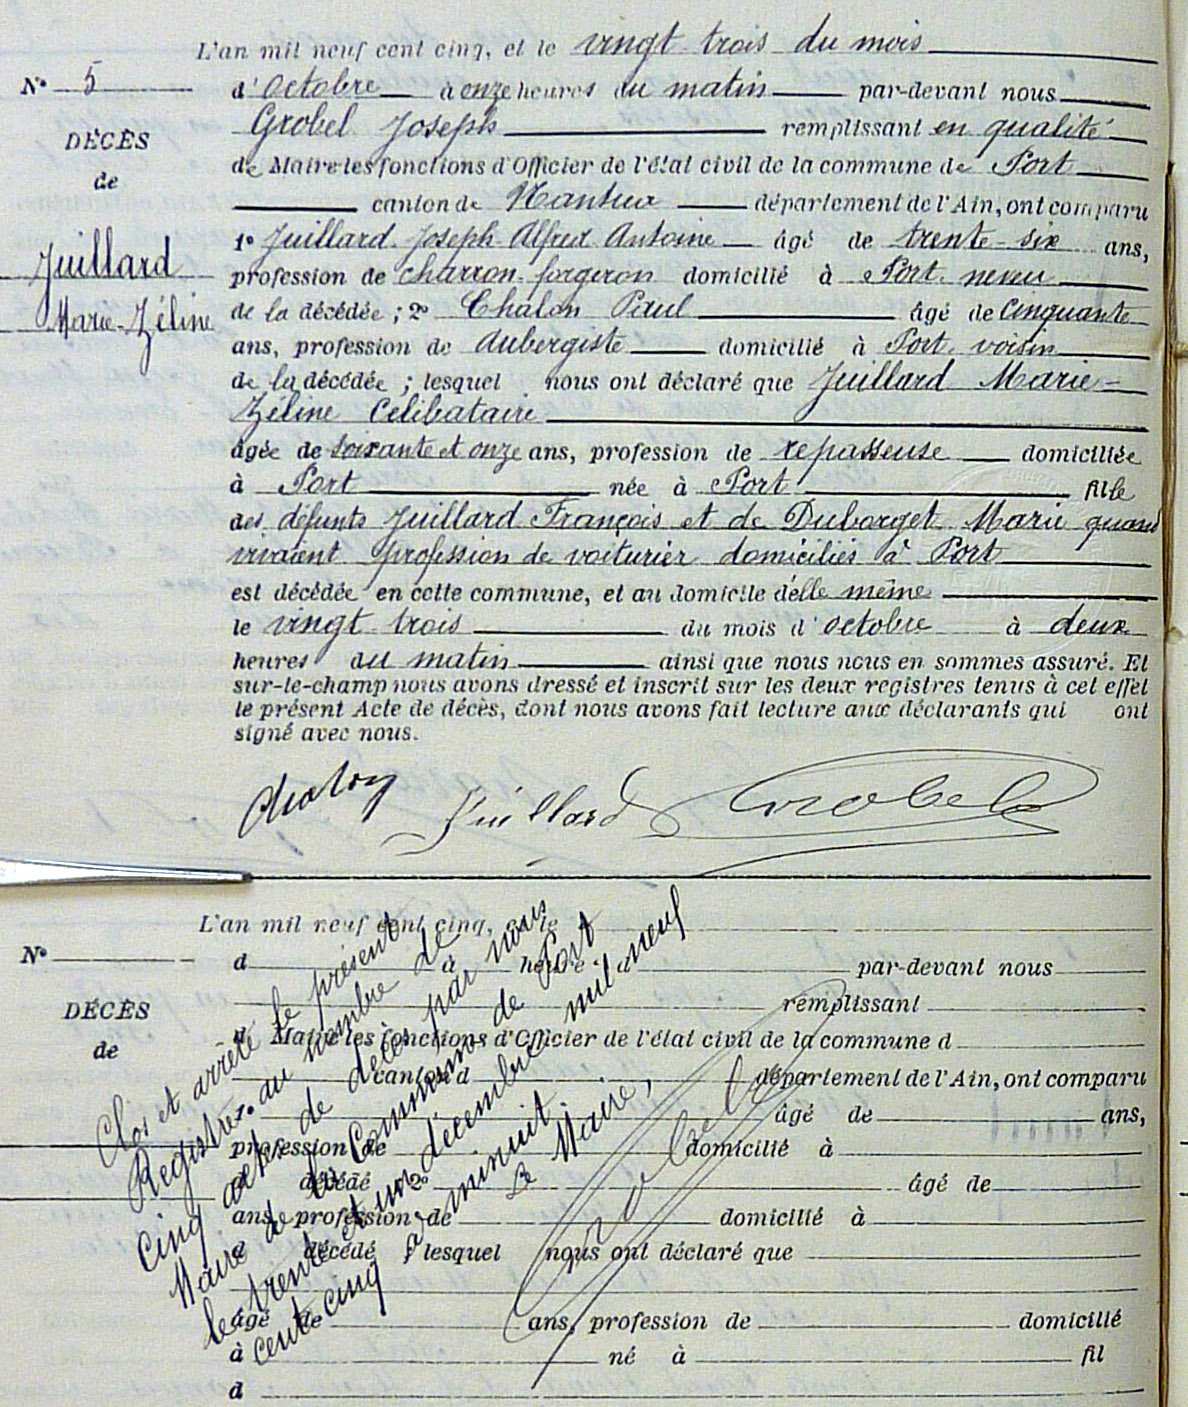 L'an mil neuf cent cinq, et le vingt trois du mois
N° 5
d'octobre à onze heures du matin par-devant nous
DÉCÈS
Grobel Joseph remplissant en qualité
de
de Maire les fonctions d'Officier de l'état civil de la commune de Port
canton de Nantua département de l'Ain, ont comparu
Juillard
Marie-Zéline
1° Juillard Joseph Alfred Antoine âgé de trente-six ans,
profession de charron-forgeron domicilié à Port neveu
de la décédée ; 2° Chalon Paul âgé de cinquante
ans, profession de aubergiste domicilié à Port voisin
de la décédée ; lesquel nous ont déclaré que Juillard Marie-
Zéline Célibataire
âgée de soixante et onze ans, profession de repasseuse domiciliée
à Port née à Port fille
des défunts Juillard François et de Duborget Marie quand
vivaient profession de voiturier domiciliés à Port
est décédée en cette commune, et au domicile d'elle même
le vingt trois du mois d'octobre à deux
heures du matin ainsi que nous nous en sommes assuré. Et
sur-le-champ nous avons dressé et inscrit sur les deux registres tenus à cet effet
le présent Acte de décès, dont nous avons fait lecture aux déclarants qui ont
signé avec nous.
Chalon Juillard Grobel
L'an mil neuf cent cinq, et le
N°
d à heure d par-devant nous
DÉCÈS
remplissant
de
d Maire les fonctions d'Officier de l'état civil de la commune d
canton d département de l'Ain, ont comparu
1° âgé de ans,
profession de domicilié à
d décédé 2° âgé de
ans, profession de domicilié à
d décédé ; lesquel nous ont déclaré que
âgé de ans, profession de domicilié
à né à fil
d
Clos et arrêté le présent
Registre au nombre de
cinq actes de décès par nous
Maire de la Commune de Port
le trente et un décembre mil neuf
cent cinq à minuit.
Le Maire,
Grobel